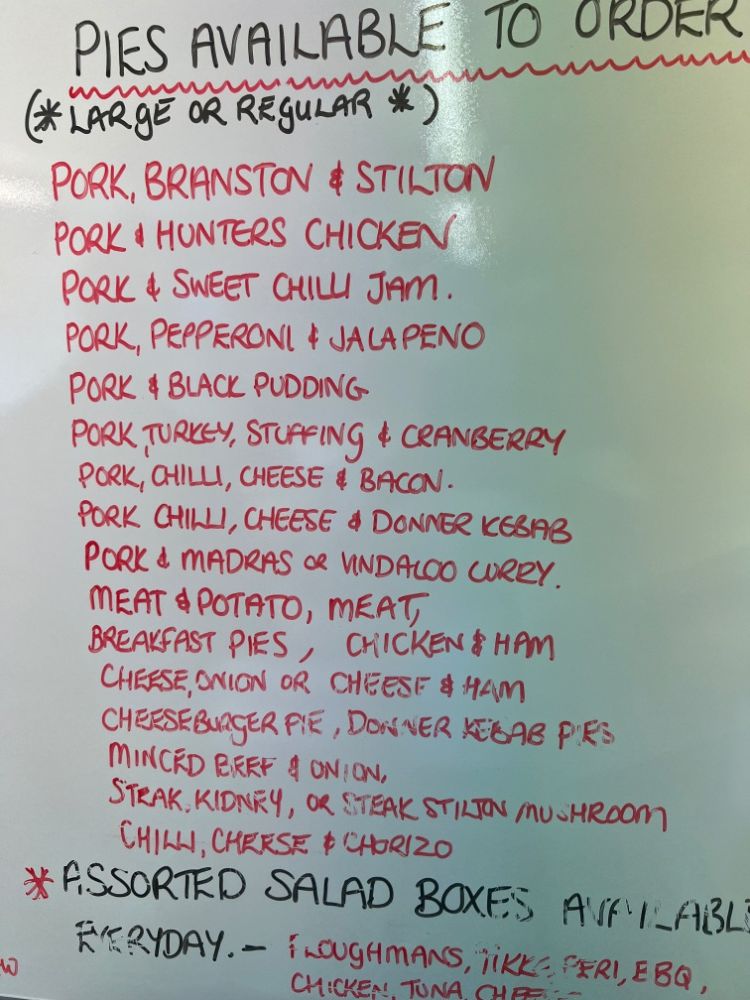 PIES AVAILABLE TO ORDER
(* LARGE OR REGULAR *)
PORK, BRANSTON & STILTON
PORK & HUNTERS CHICKEN
PORK & SWEET CHILLI JAM.
PORK, PEPPERONI & JALAPENO
PORK & BLACK PUDDING
PORK, TURKEY, STUFFING & CRANBERRY
PORK, CHILLI, CHEESE & BACON.
PORK CHILLI, CHEESE & DONNER KEBAB
PORK & MADRAS OR VINDALOO CURRY.
MEAT & POTATO, MEAT,
BREAKFAST PIES, CHICKEN & HAM
CHEESE, ONION OR CHEESE & HAM
CHEESEBURGER PIE, DONNER KEBAB PIES
MINCED BEEF & ONION,
STEAK, KIDNEY, OR STEAK STILTON MUSHROOM
CHILLI, CHEESE & CHORIZO
* ASSORTED SALAD BOXES AVAILABLE
EVERYDAY. - PLOUGHMANS, PERI, EBQ,
CHICKEN, TUNA, CHEESE